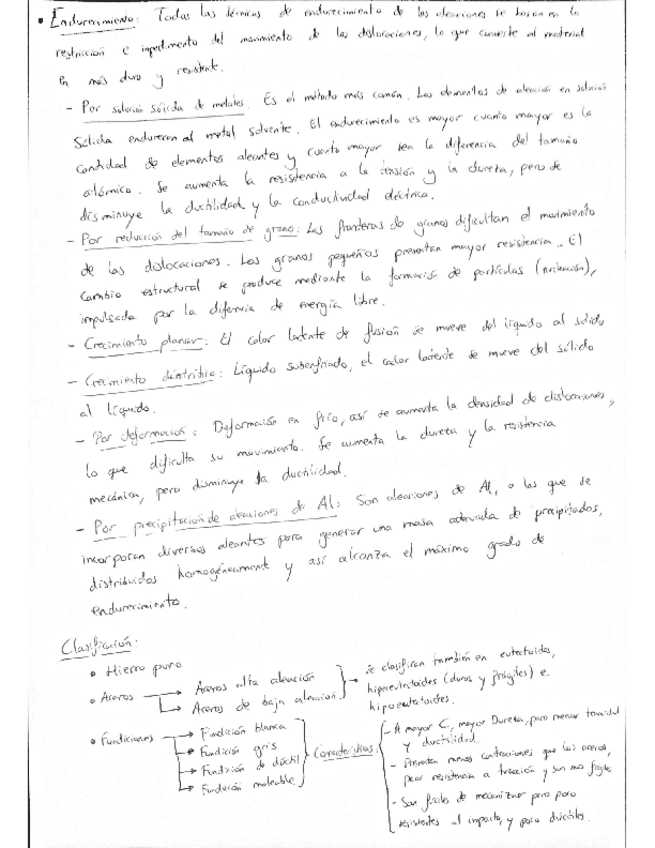 • Endurecimiento: Todas las técnicas de endurecimiento de las aleaciones se basan en la
restricción e impedimento del movimiento de las dislocaciones, lo que convierte al material
en más duro y resistente.
- Por solución sólida de metales: Es el método más común. Los elementos de aleación en solución
sólida endurecen al metal solvente. El endurecimiento es mayor cuanto mayor es la
cantidad de elementos aleantes y cuanto mayor sea la diferencia del tamaño
atómico. Se aumenta la resistencia a la tensión y la dureza, pero se
disminuye la ductilidad y la conductividad eléctrica.
- Por reducción del tamaño de grano: Las fronteras de granos dificultan el movimiento
de las dislocaciones. Los granos pequeños presentan mayor resistencia. El
cambio estructural se produce mediante la formación de partículas (nucleación),
impulsada por la diferencia de energía libre.
- Crecimiento planar: El calor latente de fusión se mueve del líquido al sólido
- Crecimiento dentrítico: Líquido subenfriado, el calor latente se mueve del sólido
al líquido.
- Por deformación: Deformación en frío, así se aumenta la densidad de dislocaciones,
lo que dificulta su movimiento. Se aumenta la dureza y la resistencia
mecánica, pero disminuye la ductilidad.
- Por precipitación de aleaciones de Al: Son aleaciones de Al, a las que se
incorporan diversos aleantes para generar una masa adecuada de precipitados,
distribuidos homogéneamente y así alcanza el máximo grado de
endurecimiento.
Clasificación:
• Hierro puro
• Aceros → Aceros alta aleación
→ Aceros de baja aleación
→ Se clasifican también en eutectoides,
hipereutectoides (duros y frágiles) e
hipoeutectoides.
• Fundiciones → Fundición blanca
→ Fundición gris
→ Fundición de dúctil
→ Fundición maleable
Características:
- A mayor C, mayor Dureza, pero menor tenacidad
y ductilidad.
- Presentan menos contracciones que los aceros,
peor resistencia a tracción y son más frágiles
- Son fáciles de mecanizar pero poco
resistentes al impacto, y poco dúctiles.